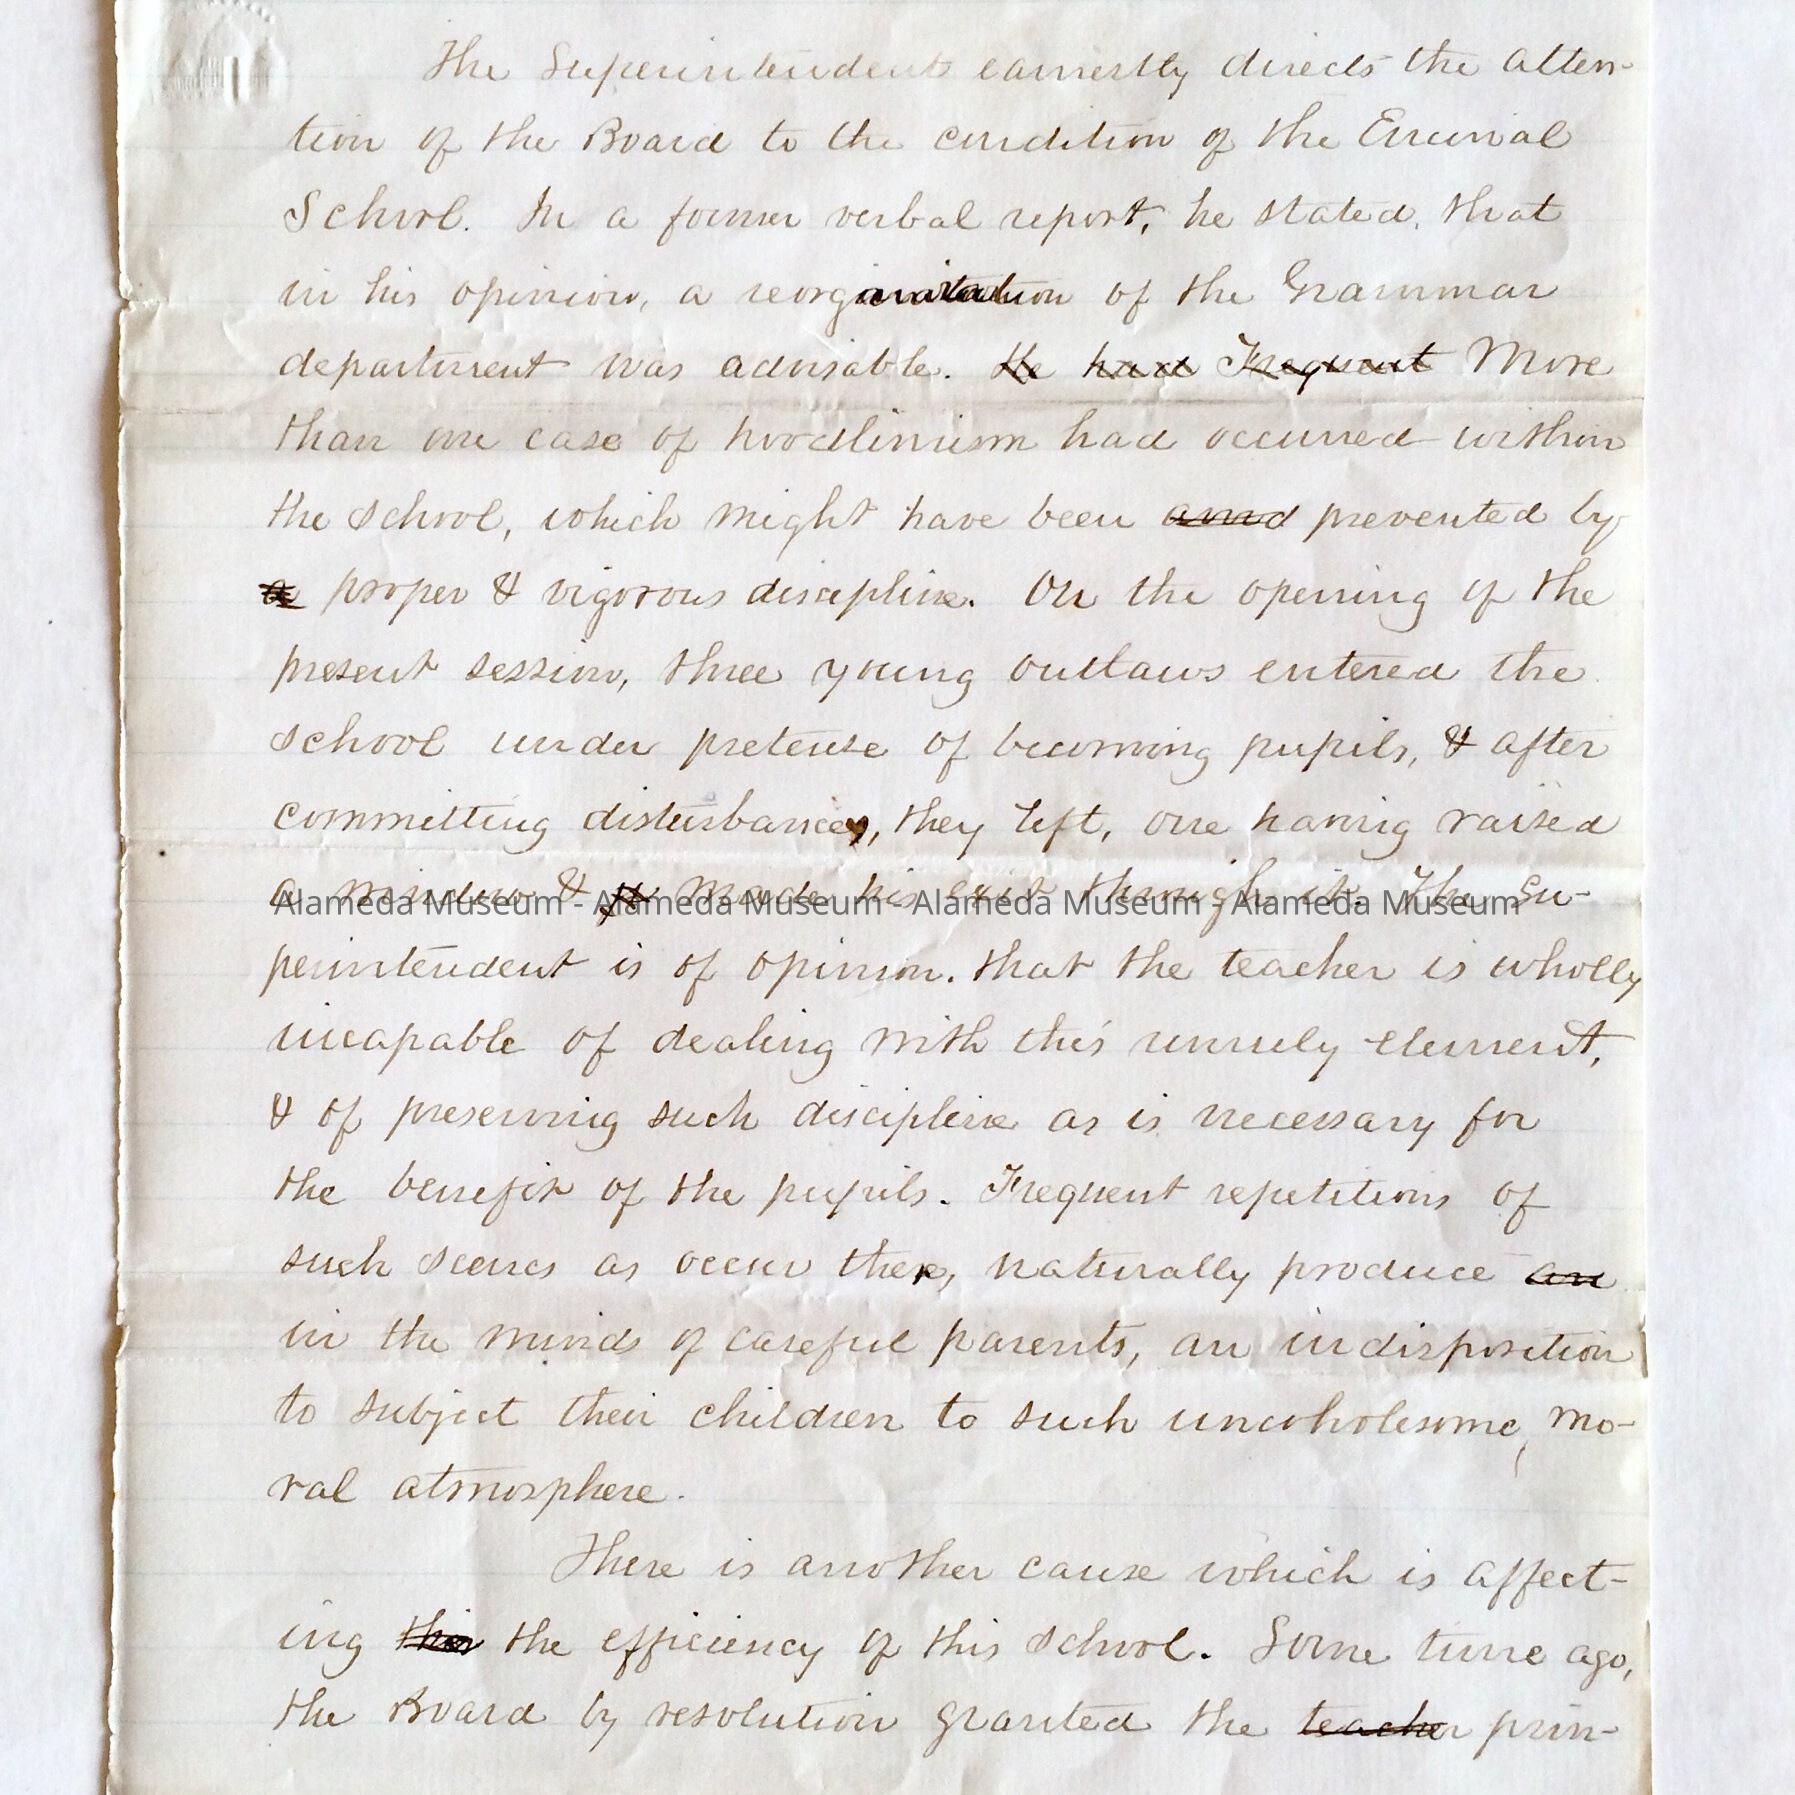 The Superintendent earnestly directs the atten-
tion of the Board to the condition of the Encinal
School. In a former verbal report, he stated, that
in his opinion, a reorganization of the Grammar
department was advisable. He had Frequent More
than one case of hoodlumism had occurred within
the school, which might have been and prevented by
a proper & vigorous discipline. On the opening of the
present session, three young outlaws entered the
school under pretense of becoming pupils, & after
committing disturbances, they left, one having raised
a window & made his exit through it. The Su-
Alameda Museum - Alameda Museum - Alameda Museum - Alameda Museum
perintendent is of opinion, that the teacher is wholly
incapable of dealing with this unruly element,
& of preserving such discipline as is necessary for
the benefit of the pupils. Frequent repetitions of
such scenes as occur there, naturally produce an
in the minds of careful parents, an indisposition
to subject their children to such unwholesome, mo-
ral atmosphere.
There is another cause which is affect-
ing this the efficiency of this school. Some time ago,
the Board by resolution granted the teacher prin-